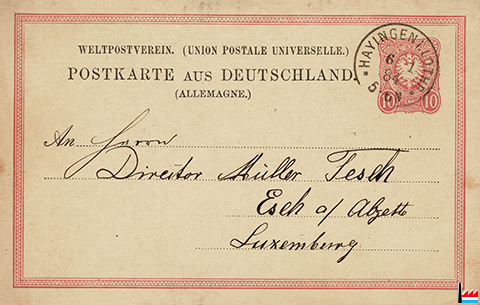 WELTPOSTVEREIN. (UNION POSTALE UNIVERSELLE.)
POSTKARTE AUS DEUTSCHLAND.
(ALLEMAGNE.)
HAYINGEN i. LOTHR.
6 7
84
5-6N
10 10
An Herrn
Director Müller Tesch
Esch a/ Alzette
Luxemburg